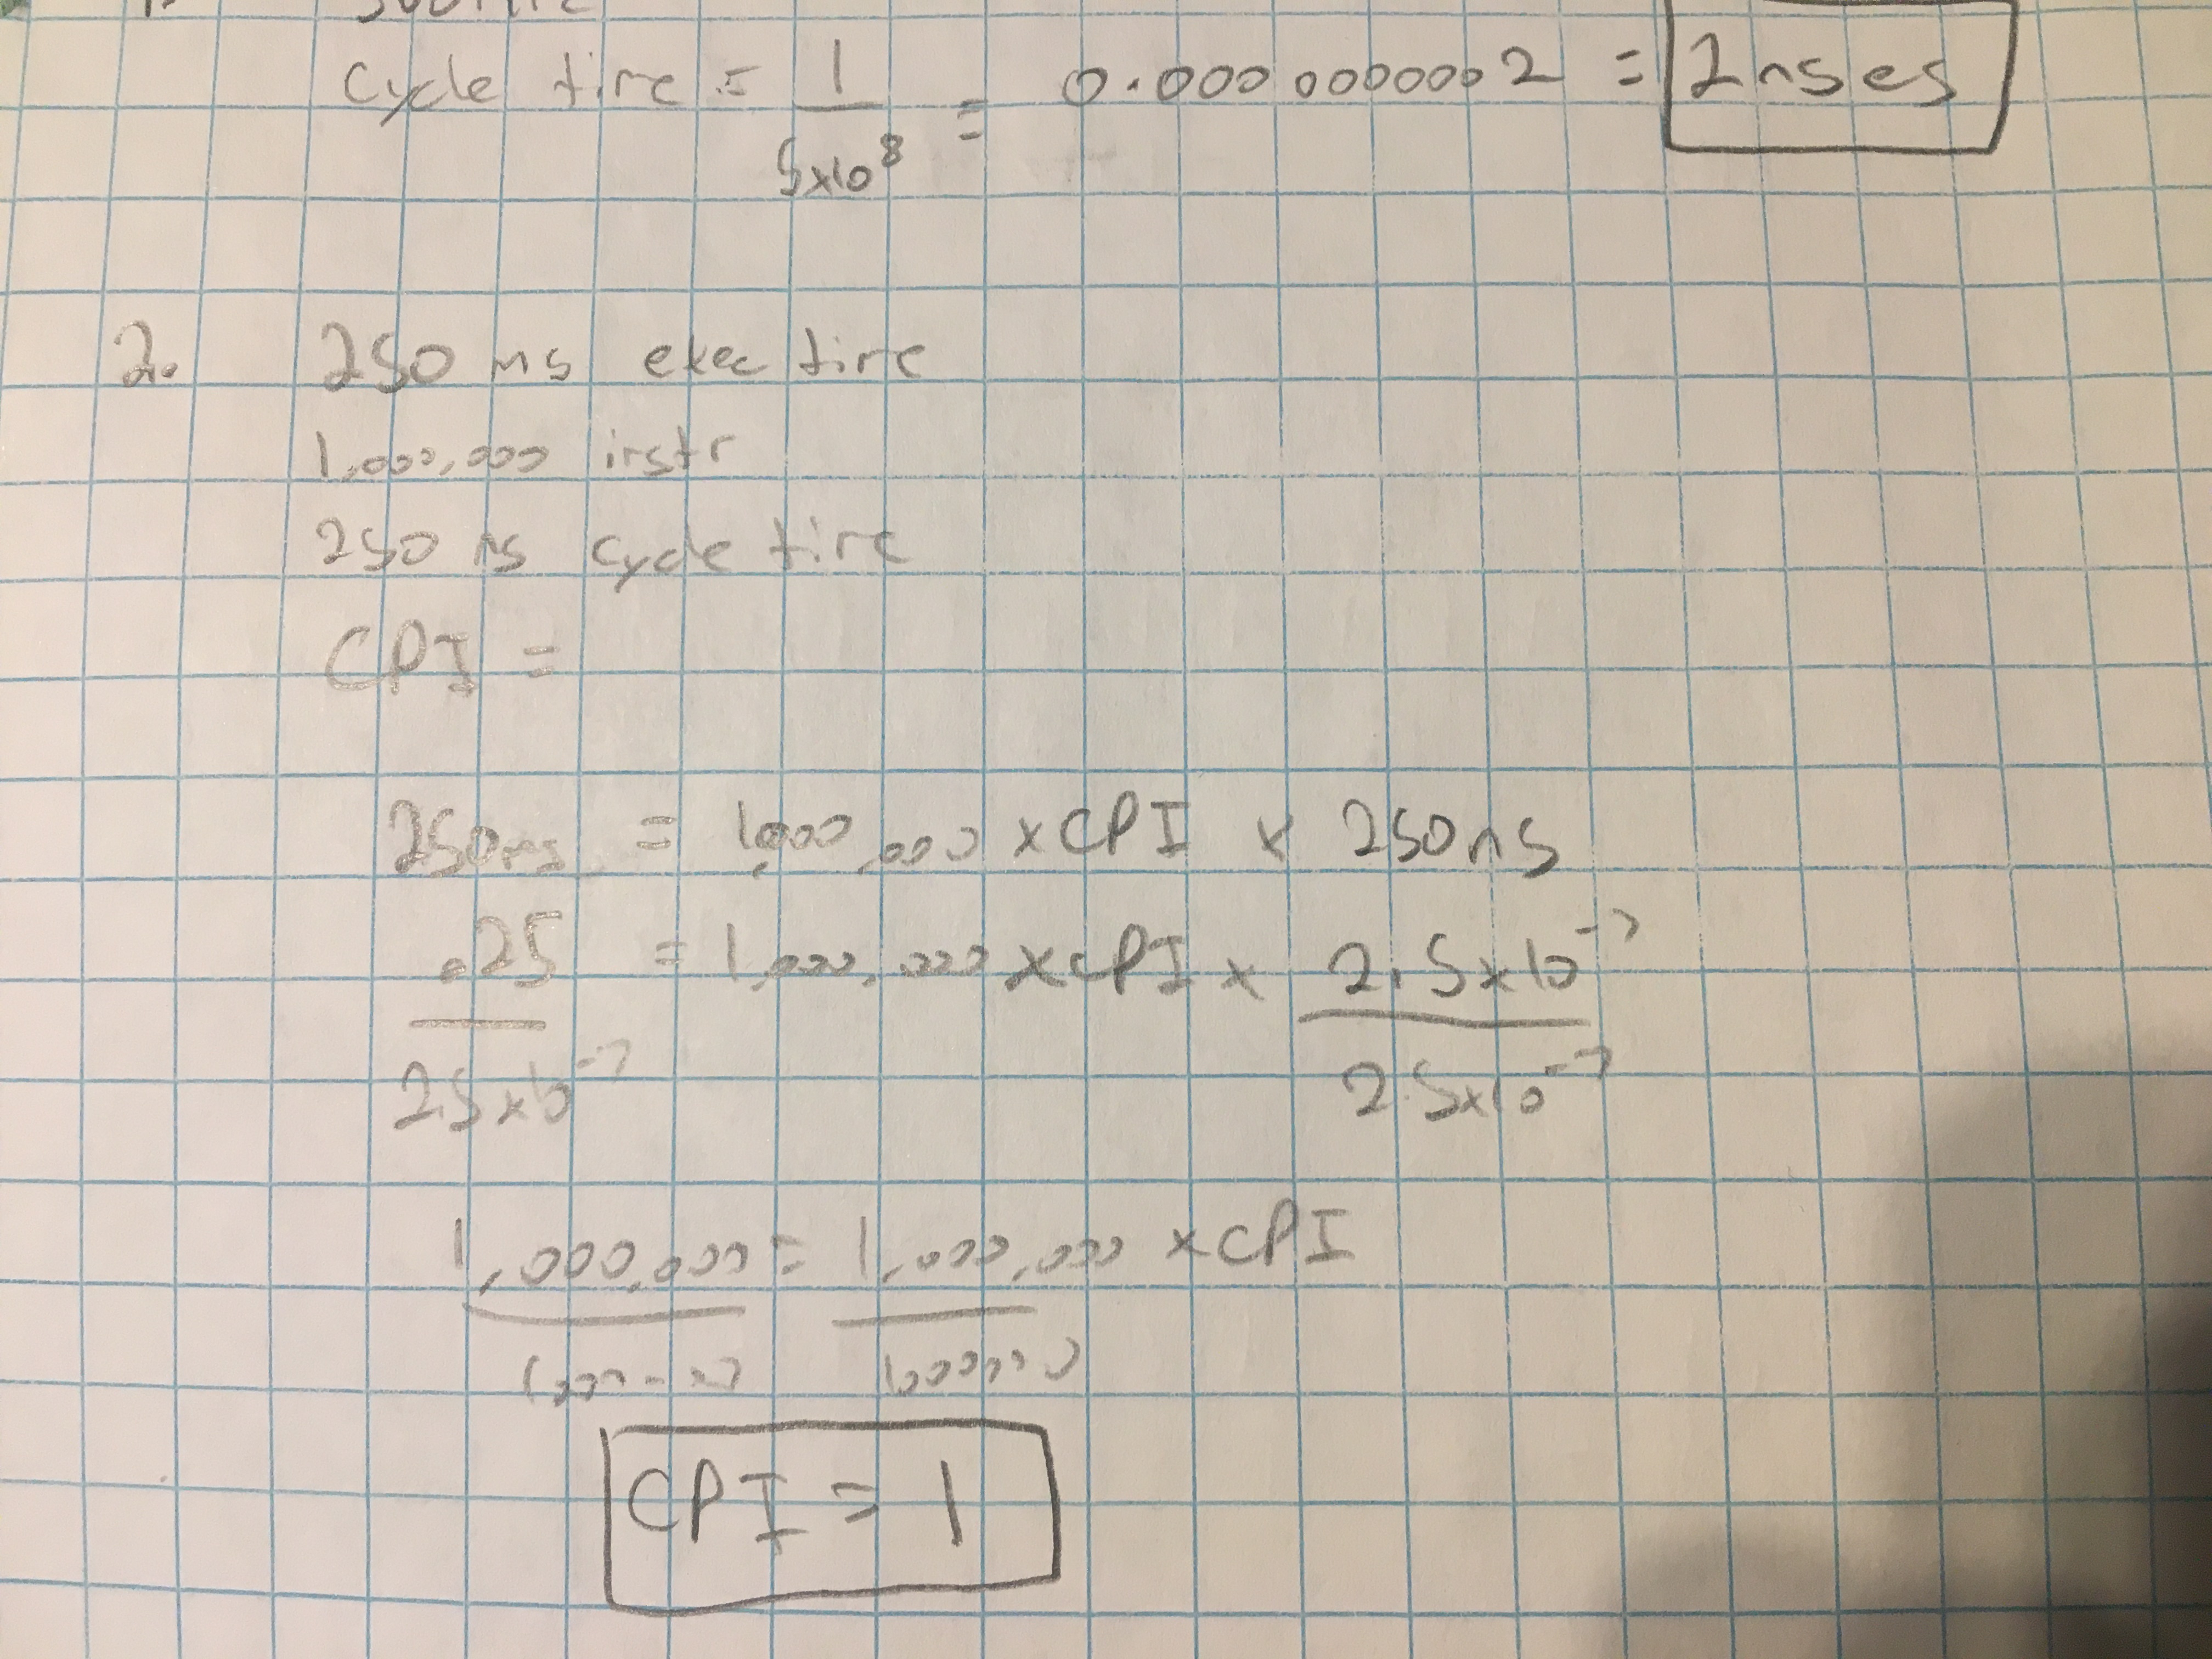 cycle time = 1 / 5x10^8 = 0.000000002 = 2nses
2. 250 ms exec time
1,000,000 instr
250 ns cycle time
CPI =
250ms = 1,000,000 x CPI x 250ns
.25 = 1,000,000 x CPI x 2.5x10^-7
2.5x10^-7 2.5x10^-7
1,000,000 = 1,000,000 x CPI
1,000,000 1,000,000
CPI = 1